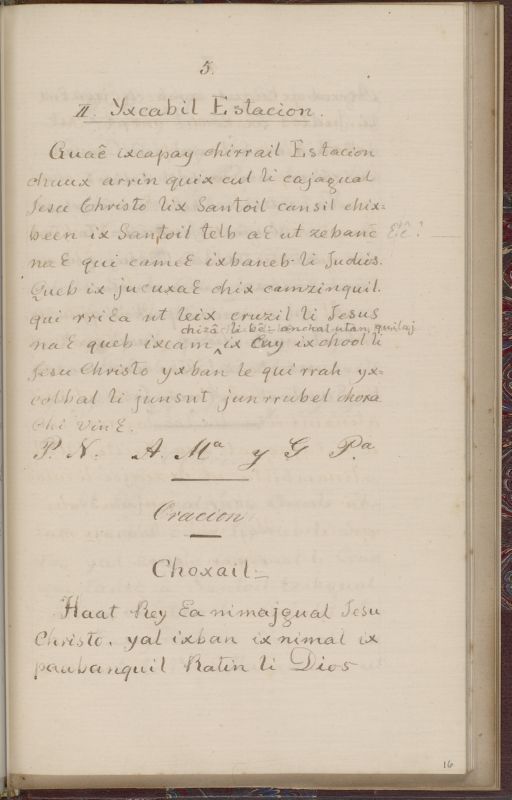 5.
II. Yxcabil Estacion.
Guaê ixcapay chirrail Estacion
chuux arrin quix cul li cajagual
Jesu Christo lix Santoil cansil chix=
been ix Santoil telb aƐ ut zebanc
naƐ qui cameƐ ixbaneb li Judios.
Queb ix jucuxaƐ chix camzinquil.
qui rriƐa ut leix cruzil li Jesus
chizâ li bê= anchal utan, quilaj
naƐ queb ixcam ^ ix Cuy ixchool li
Jesu Christo yxban le qui rrah yx=
colbal li junsut junrrubel choxa
chi vinƐ.
P. N. A. Mª y G Pª
Oracion
Choxail=
Haat Rey Ɛa nimajgual Jesu
Christo. yal ixban ix nimal ix
paubanquil Ratin li Dios
16